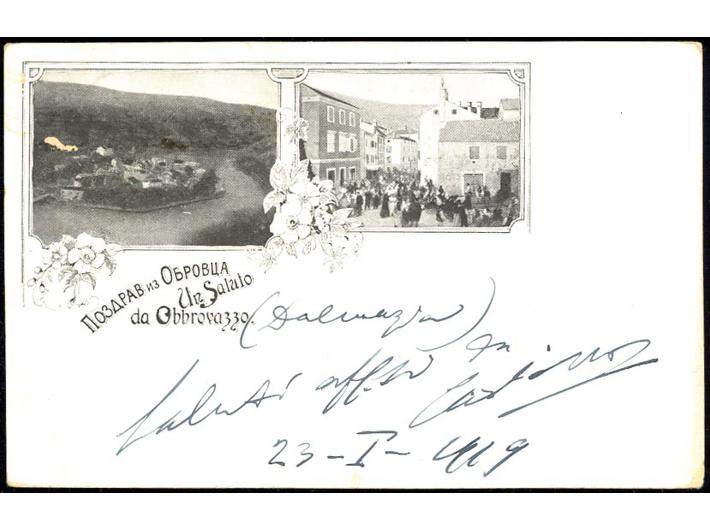 Поздрав из Обровца
Un Saluto
da Obbrovazzo.
(Dalmazia)
Saluti aff.si
23-I-919